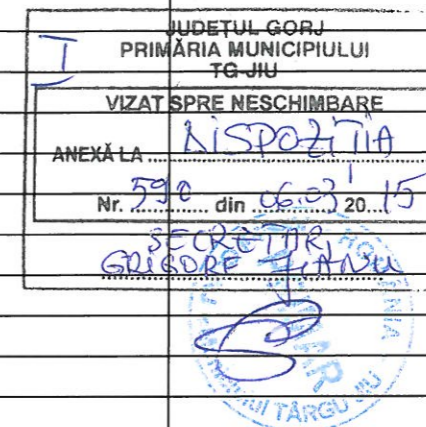 I
JUDEŢUL GORJ
PRIMĂRIA MUNICIPIULUI
TG-JIU
VIZAT SPRE NESCHIMBARE
ANEXĂ LA ..... DISPOZIȚIA
Nr. 590 din 06.03 20..15
SECRETAR,
GRIGORE
ROMÂNIA
TÂRGU JIU